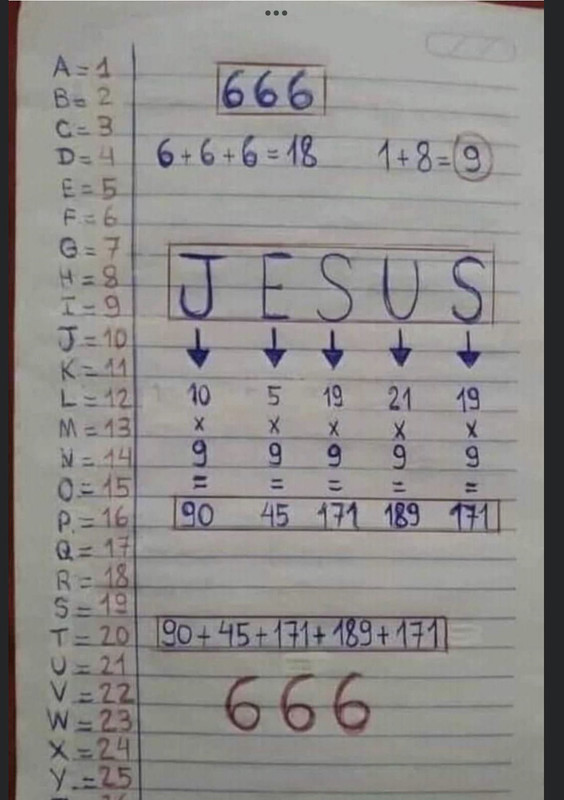 A = 1
B = 2
C = 3
D = 4
E = 5
F = 6
G = 7
H = 8
I = 9
J = 10
K = 11
L = 12
M = 13
N = 14
O = 15
P. = 16
Q = 17
R = 18
S = 19
T = 20
U = 21
V = 22
W = 23
X = 24
Y = 25
666
6+6+6=18 1+8=9
J E S U S
10 5 19 21 19
x x x x x
9 9 9 9 9
= = = = =
90 45 171 189 171
90+45+171+189+171
666